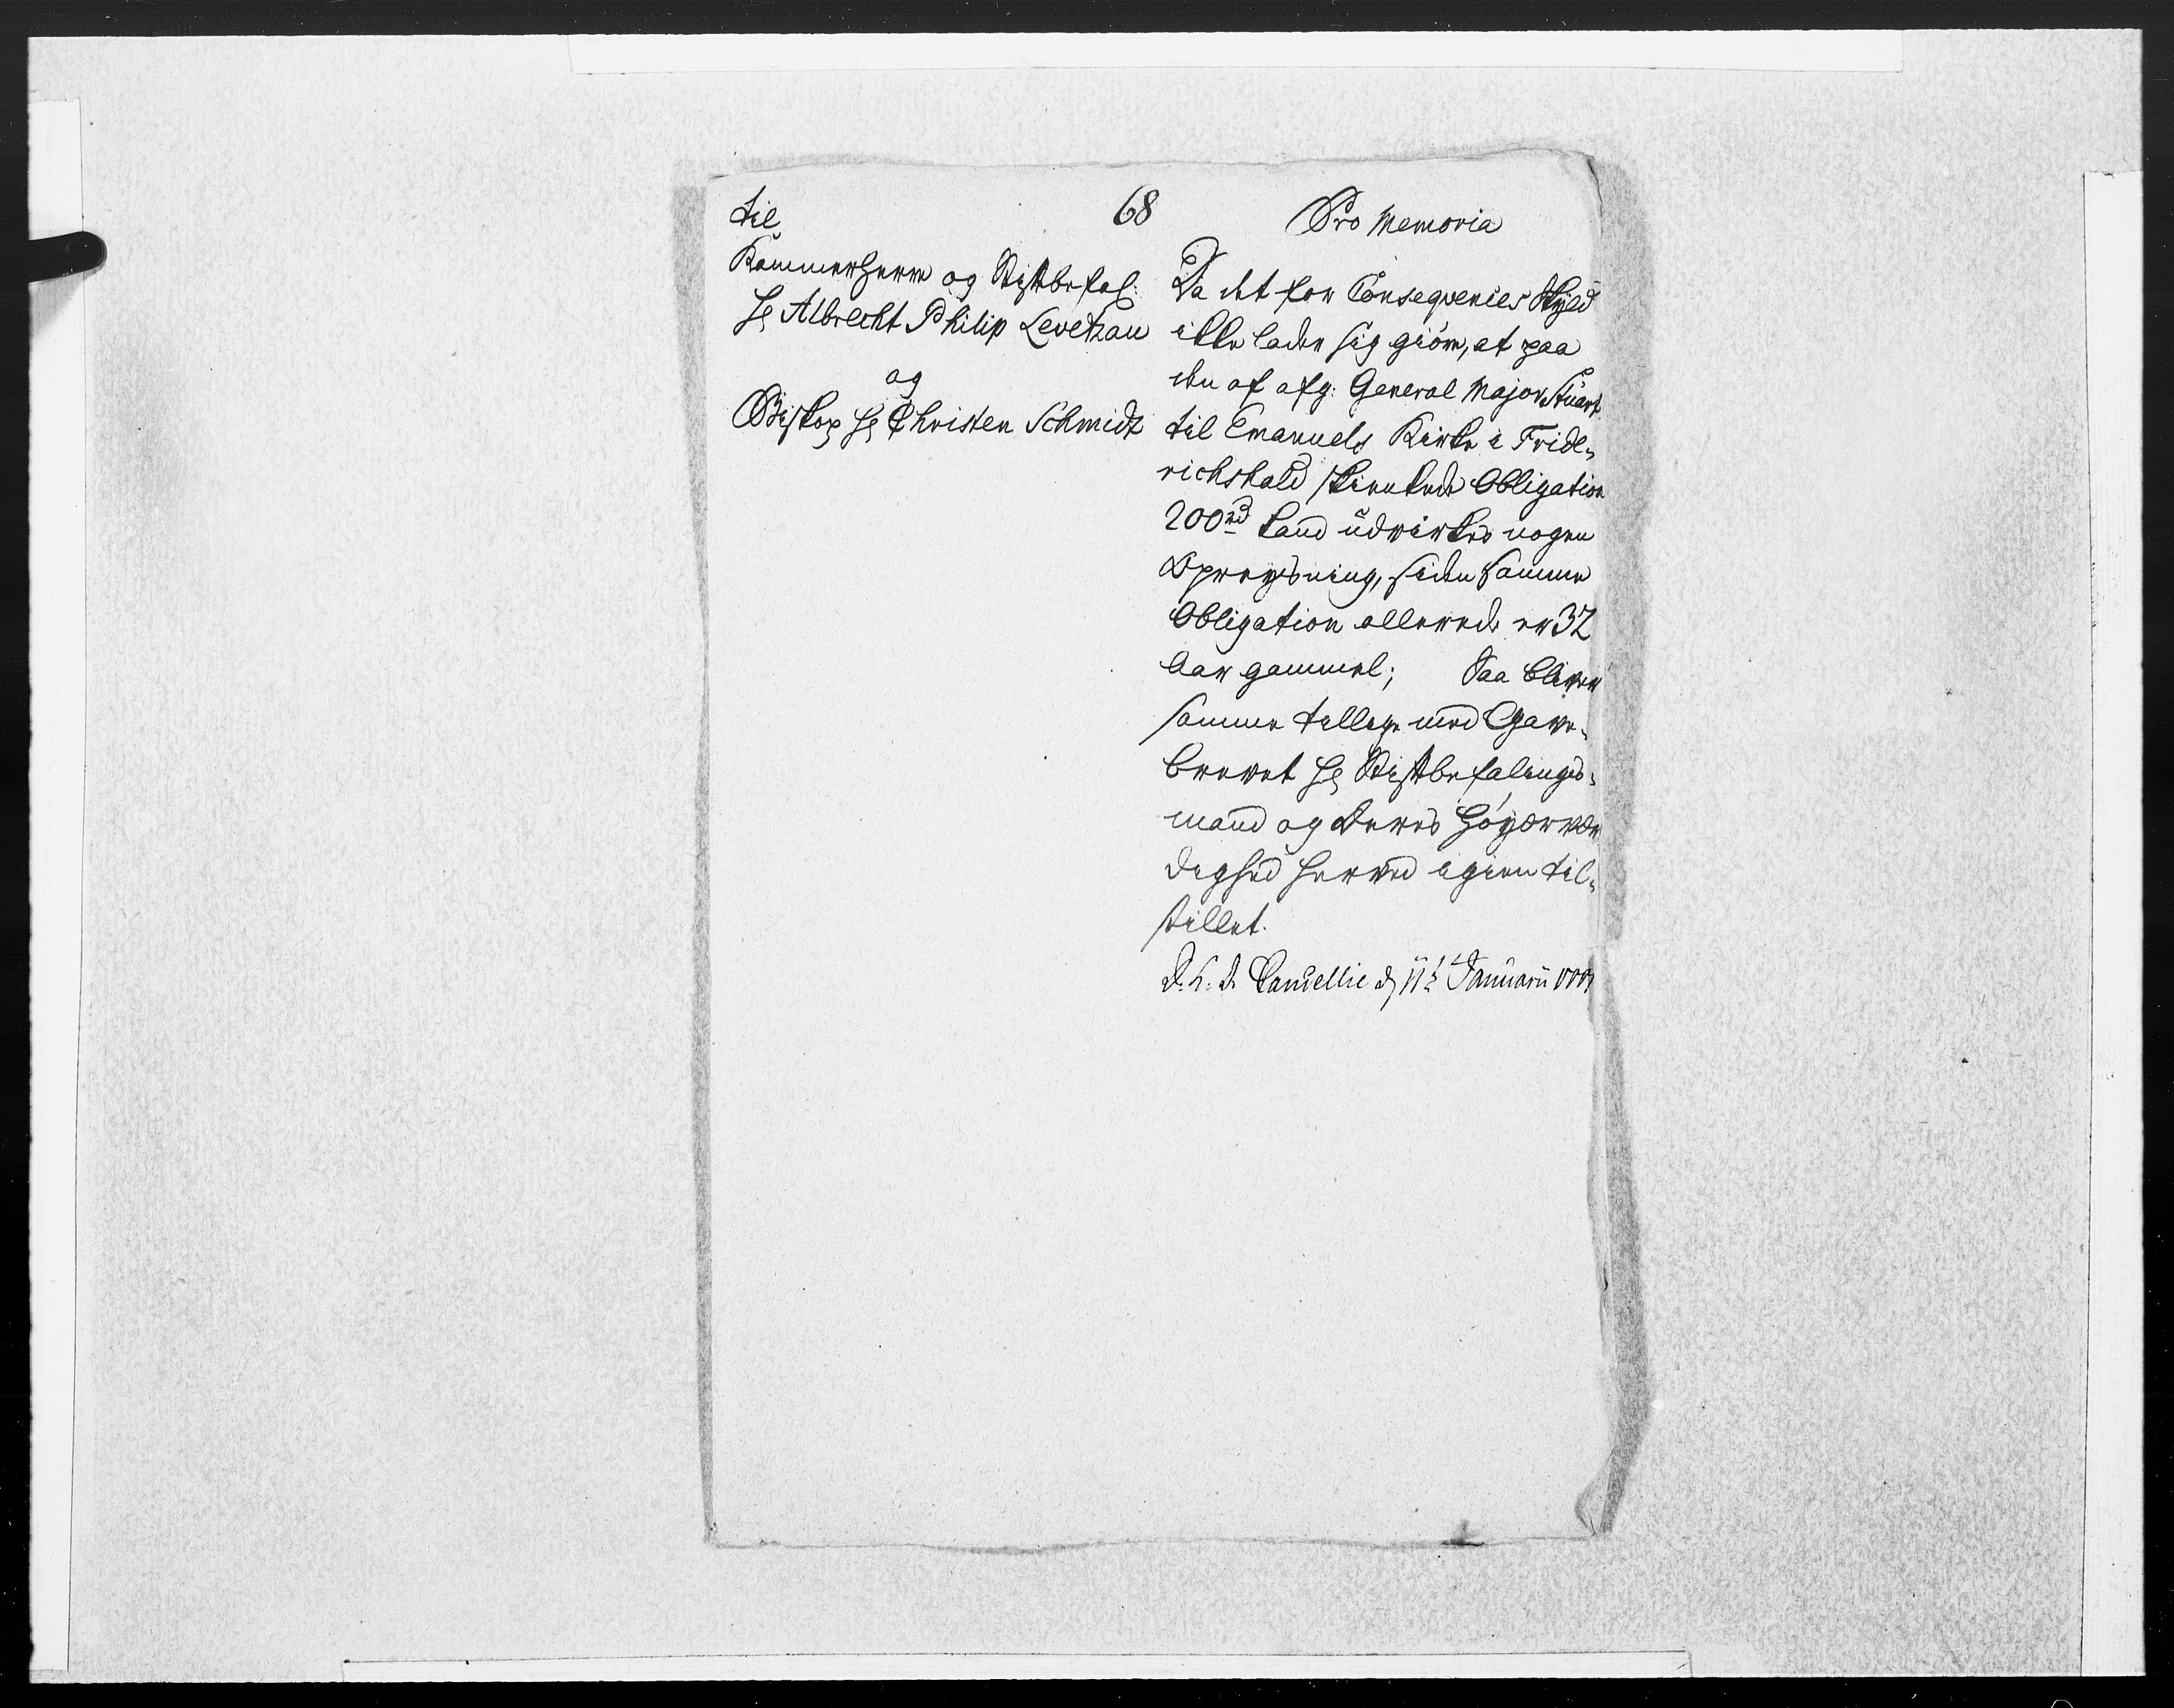 68
til
Kammerherre og Stiftbefal:
Hr Albrecht Philip Levetzau
og
Biskop Hr Christen Schmidt
Pro Memoria
Da det for Conseqvencies Skyld
ikke lader sig giøre, at paa
den af afg: General Major Stuart
til Emanuels Kirke i Fride-
richshald skienkede Obligation
200 rd kand udvirkes nogen
Opreysning, siden samme
Obligation allerede er 32
Aar gammel; Saa bliver
samme tillige med Gave-
brevet Hr Stiftbefalings-
mand og Deres Høyærvær
dighed herved igien til-
stillet.
D. C. D. Cancellie d 11t Januarii